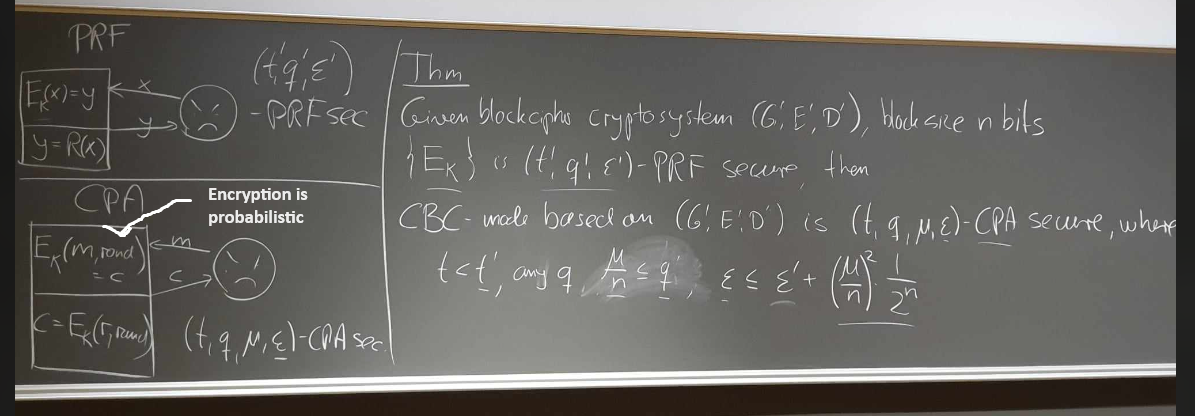 PRF
E_K(x)=y
x
y
y=R(x)
(t',q',ε')
-PRF sec
CPA
Encryption is
probabilistic
E_K(m,rand)
=c
m
c
c=E_K(r,rand)
(t,q,μ,ε)-CPA sec.
Thm
Given blockcipher cryptosystem (G',E',D'), blocksize n bits
{E_K} is (t',q',ε')-PRF secure, then
CBC-mode based on (G',E',D') is (t,q,μ,ε)-CPA secure, where
t<t', any q, μ/n ≤ q', ε ≤ ε' + (μ/n)² · 1/2ⁿ